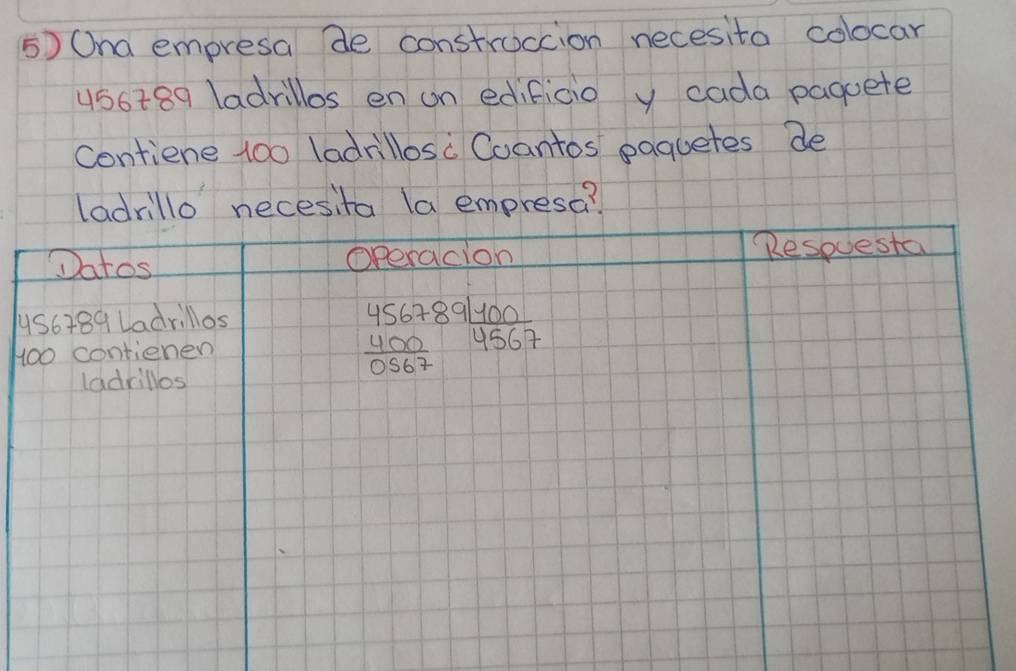 5) Una empresa de construccion necesita colocar
456789 ladrillos en un edificio y cada paquete
contiene 100 ladrillos ¿ Cuantos paquetes de
ladrillo necesita la empresa?
Datos Operacion Respuesta
456789 Ladrillos 456789 100
100 contienen 400 4567
ladrillos 0567